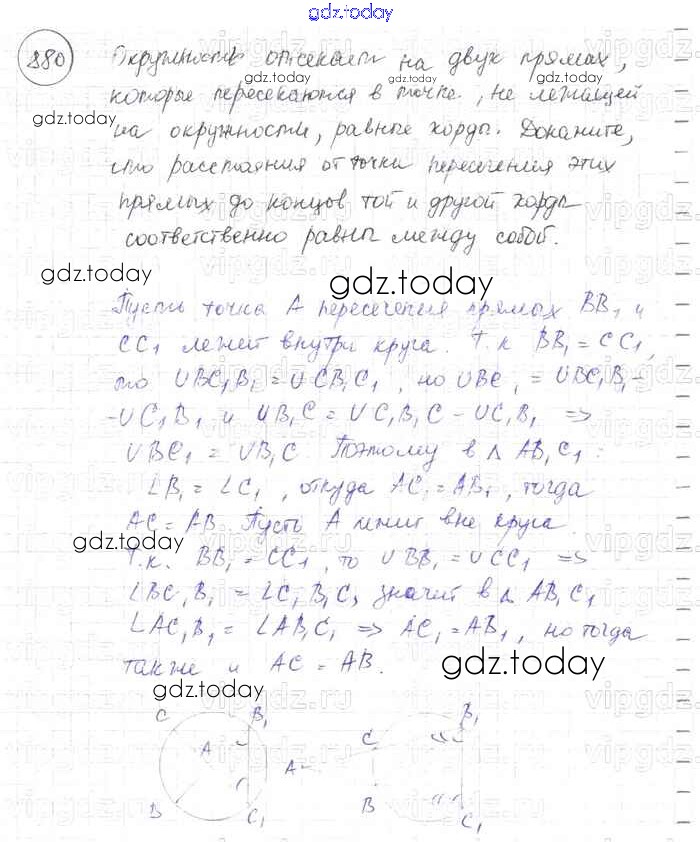 gdz.today
880 Окружность отсекает на двух прямых,
которые пересекаются в точке, не лежащей
на окружности, равные хорды. Докажите,
что расстояния от точки пересечения этих
прямых до концов той и другой хорды
соответственно равны между собой.
Пусть точка A пересечения прямых BB₁ и
CC₁ лежит внутри круга. Т.к BB₁ = CC₁,
то ∪BC₁B₁ = ∪CB₁C₁, но ∪BC₁ = ∪BC₁B₁ -
- ∪C₁B₁ и ∪B₁C = ∪C₁B₁C - ∪C₁B₁ =>
∪BC₁ = ∪B₁C. Поэтому в △ AB₁C₁:
∠B₁ = ∠C₁, откуда AC₁ = AB₁, тогда
AC = AB. Пусть A лежит вне круга.
Т.к. BB₁ = CC₁, то ∪BB₁ = ∪CC₁ =>
∠BC₁B₁ = ∠C₁B₁C, значит в △ AB₁C₁
∠AC₁B₁ = ∠AB₁C₁ => AC₁ = AB₁, но тогда
также и AC = AB.
C B₁ A B C₁
A C B₁ B C₁